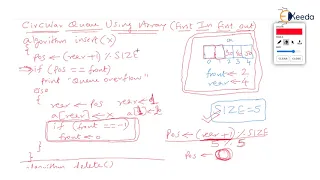 Circular Queue Using Array (First In First out)
Ekeeda
algorithm insert(x)
{
Pos ← (rear+1) % SIZE
if (Pos == front)
print "Queue overflow"
else
{
rear ← Pos
a[rear] ← x
if (front == -1)
front ← 0
}
}
algorithm delete()
front ← 2,
rear ← 4
SIZE = 5
Pos ← (rear+1) % SIZE
5 % 5
Pos ← 0